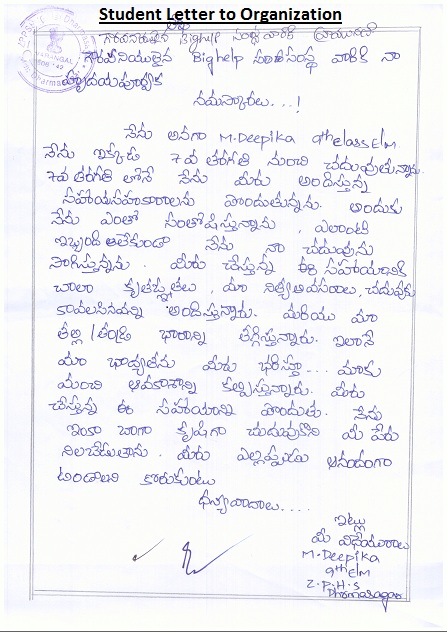 Student Letter to Organization
గౌరవనీయులైన Bighelp సంస్థ వారికి
గౌరవనీయులైన Bighelp స్వచ్ఛంద సంస్థ వారికి నా
హృదయపూర్వక
నమస్కారలు...!
నేను అనగా M.Deepika 9thclass E/M.
నేను ఇక్కడ 7వ తరగతి నుంచి చదువుతున్నాను.
7వ తరగతి లోనే నేను మీరు అందిస్తున్న
సహాయసహకారాలను పొందుతున్నను. అందుకు
నేను ఎంతో సంతోషిస్తున్నాను, ఎలాంటి
ఇబ్బంది లేకుండా నేను నా చదువును
సాగిస్తున్నను. మీరు చేస్తున్న ఈ సహాయానికి
చాలా కృతజ్ఞతలు, మా నిత్యఅవసరాలు, చదువుకు
కావలసినవన్ని అందిస్తున్నారు. మరియు మా
తల్లి/తండ్రి భారాన్ని తగ్గిస్తున్నారు. ఇలానే
మా భాద్యతను మీరు భరిస్తూ... మాకు
మంచి అవకాశాన్ని కల్పిస్తున్నారు. మీరు
చేస్తున్న ఈ సహాయాన్ని పొందుతు. నేను
ఇంకా బాగా కృషిగా చదువుకొని మీ పేరు
నిలబెడుతాను. మీరు ఎల్లప్పుడు ఆనందంగా
ఉండాలని కోరుకుంటు
ధన్యవాదాలు....
ఇట్లు
మీ విధేయురాలు
M.Deepika
9th E/M
Z.P.H.S
Dharmasagar